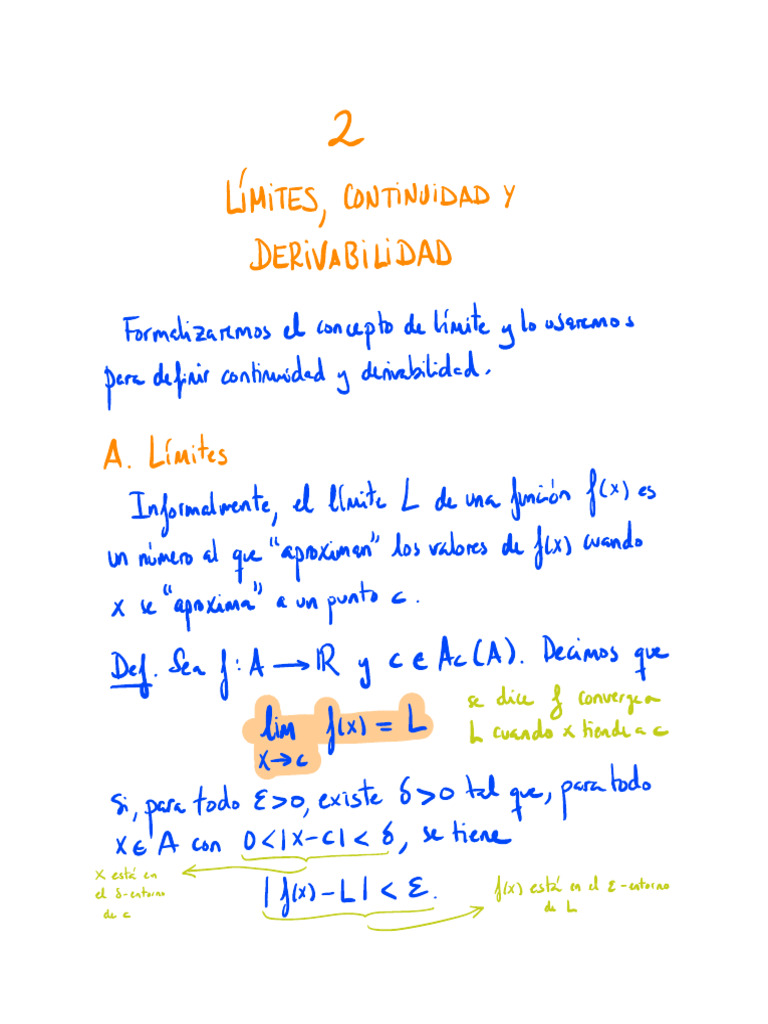 2
LÍMITES, CONTINUIDAD Y
DERIVABILIDAD
Formalizaremos el concepto de límite y lo usaremos
para definir continuidad y derivabilidad.
A. Límites
Informalmente, el límite L de una función f(x) es
un número al que "aproximan" los valores de f(x) cuando
x se "aproxima" a un punto c.
Def. Sea f: A → ℝ y c ∈ Ac(A). Decimos que
lim f(x) = L
x→c
se dice f converge a
L cuando x tiende a c
Si, para todo ε>0, existe δ>0 tal que, para todo
x ∈ A con 0<|x-c|<δ, se tiene
x está en
el δ-entorno
de c
|f(x)-L|<ε.
f(x) está en el ε-entorno
de L